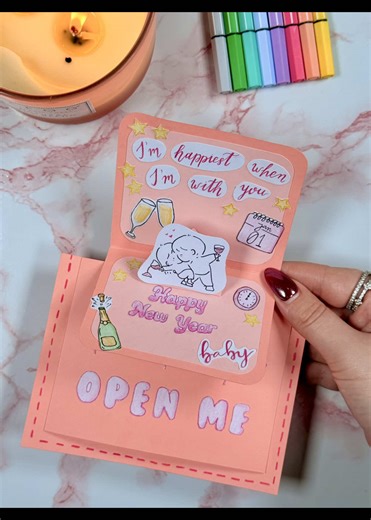 I'm happiest when
I'm with you
Jan
01
Happy
New Year
baby
OPEN ME